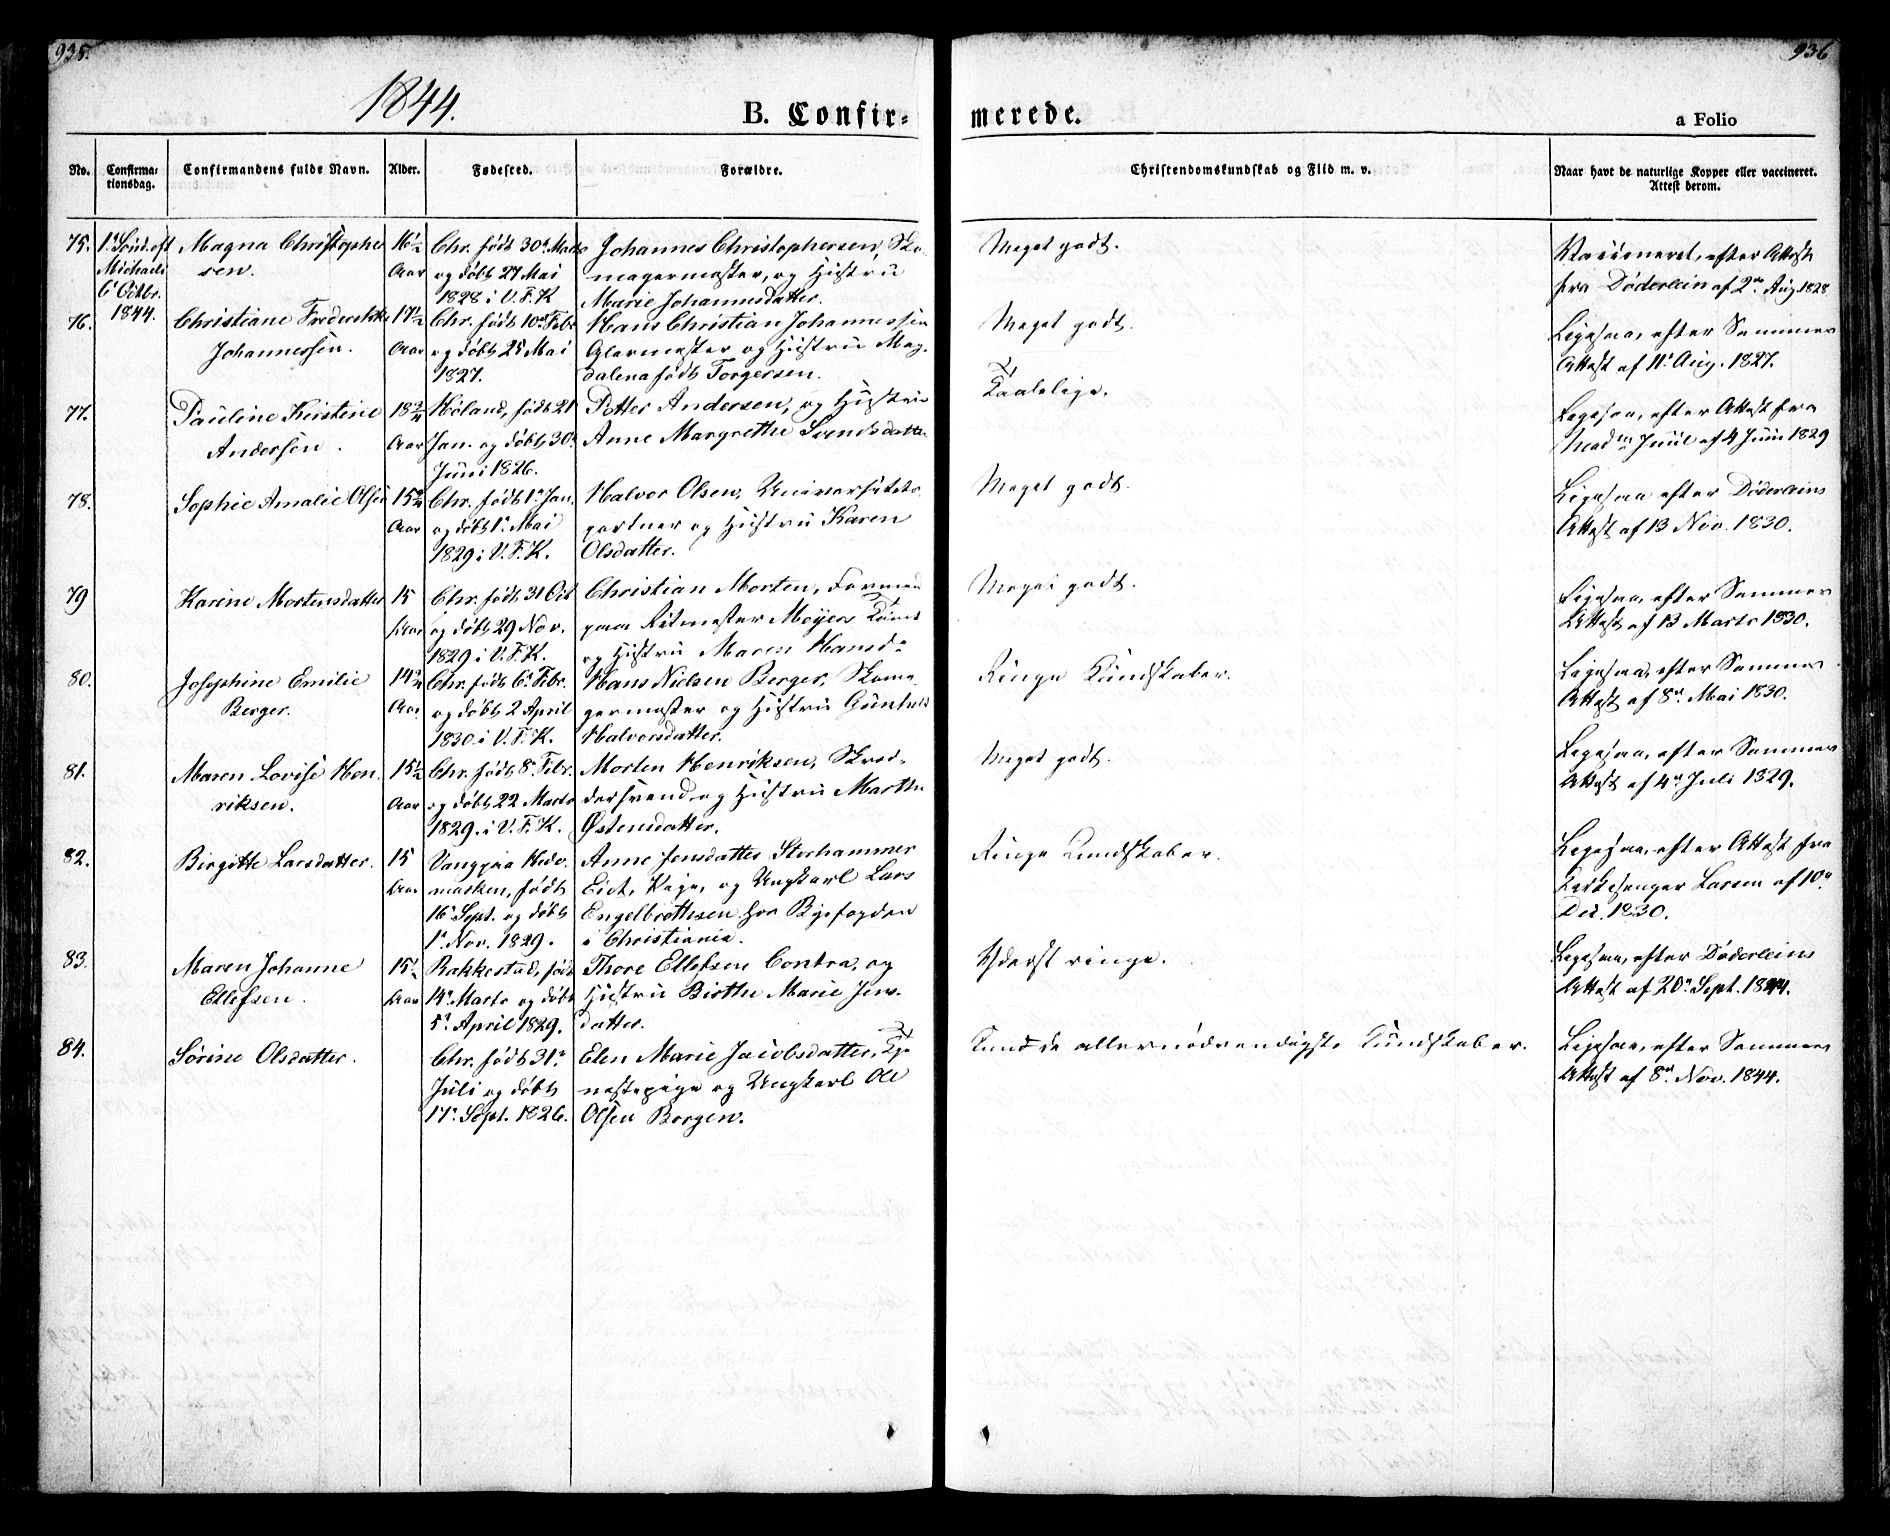 935.
936
1844.
B. Confir-
merede.
a Folio
No.
Confirma-
tionsdag.
Confirmandens fulde Navn.
Alder.
Fødested.
Forældre.
Christendomskundskab og Flid m. v.
Naar havt de naturlige Kopper eller vaccineret.
Attest derom.
75.
1ste Sönd. eft
Michaeli
6' Octbr.
1844.
Magna Christopher
sen.
16½
Aar
Chr. født 30' Marts
og døbt 27 Mai
1828 i V. F. K
Johannes Christophersen, Sko
magermester, og Hustru
Marie Johannesdatter.
Meget godt.
Vaccineret, efter Attest
fra Døderlein af 2den Aug. 1828
76.
Christiane Frederikke
Johannessen.
17½
Aar
Chr. født 10de Febr
og døbt 25 Mai
1827.
Hans Christian Johannessen
Glarmester og Hustru Mag-
dalena født Torgersen.
Meget godt.
Ligesaa, efter Sammes
Attest af 11' Aug. 1827.
77.
Pauline Kirstine
Andersen.
18¾
Aar
Höland, født 21
Jan. og døbt 30'
Juni 1826.
Petter Andersen, og Hustru
Anne Margrethe Svendsdatter
Taalelige.
Ligesaa, efter Attest fra
Mad. Juul af 4 Juni 1829
78.
Sophie Amalie Olsen
15¾
Aar
Chr. født 1' Jan.
og døbt 1' Mai
1829 i V. F. K.
Halvor Olsen, Universitets-
gartner og Hustru Karen
Olsdatter.
Meget godt.
Ligesaa efter Døderleins
Attest af 13 Nov. 1830.
79
Karine Mortensdatter
15
Aar
Chr. født 31 Oct
og døbt 29 Nov.
1829 i V. F. K.
Christian Morten, Formand
paa Ritmester Meyers Tomt
og Hustru Maren Hansd-
Meget godt.
Ligesaa, efter Sammes
Attest af 13 Marts 1830.
80.
Josephine Emilie
Berger.
14¾
Aar
Chr. født 6' Febr.
og døbt 2 April
1830 i V. F. K.
Hans Nielsen Berger, Skoma-
germester og Hustru Gunhild
Halvorsdatter.
Ringe Kundskaber.
Ligesaa, efter Sammes
Attest af 8de Mai 1830.
81.
Maren Lovise Hen
riksen.
15½
Aar
Chr. født 8' Febr.
og døbt 22 Marts
1829. i V. F. K.
Morten Henriksen, Skræd-
dersvend, og Hustru Marthe
Østensdatter.
Meget godt.
Ligesaa, efter Sammes
Attest af 4de Juli 1829.
82.
Birgitte Larsdatter.
15
Aar
Vang paa Hede-
marken, født
16' Sept. og døbt
1' Nov. 1829.
Anne Jensdatter Storhammer
Eiet, Pige, og Ungkarl Lars
Engelbrethsen hos Byfogden
i Christiania.
Ringe Kundskaber.
Ligesaa, efter Attest fra
Kirkesanger Larsen af 10de
Dec. 1830.
83.
Maren Johanne
Ellefsen.
15½
Aar
Rakkestad, født
14' Marts og døbt
5' April 1829.
Thore Ellefsen Contra, og
Hustru Birthe Marie Jens-
datter.
Yderst ringe.
Ligesaa, efter Døderleins
Attest af 20' Sept. 1844.
84.
Sörine Olsdatter.
Chr. født 31'
Juli og døbt
17' Sept. 1826.
Elen Marie Jacobsdatter, Tje-
nestepige og Ungkarl Ole
Olsen Borgen.
Kun de allernødvendigste Kundskaber.
Ligesaa, efter Sammes
Attest af 8de Nov. 1844.